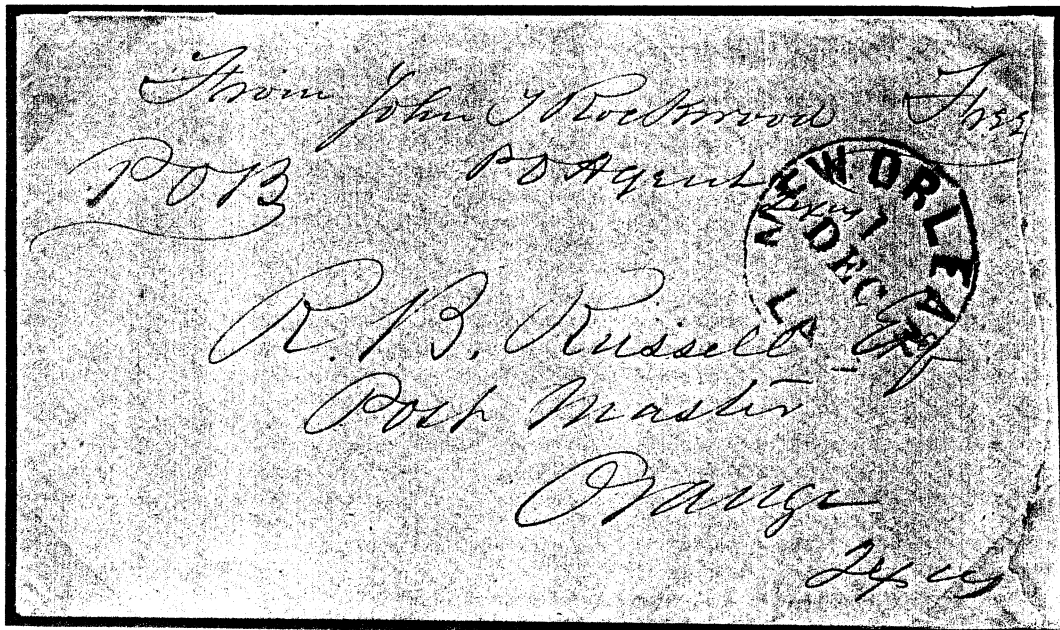 From John T Rockwood Free
P O B
P O Agent
NEW ORLEANS LA
DEC
R. B. Russell Esq
Post Master
Orange
Texas